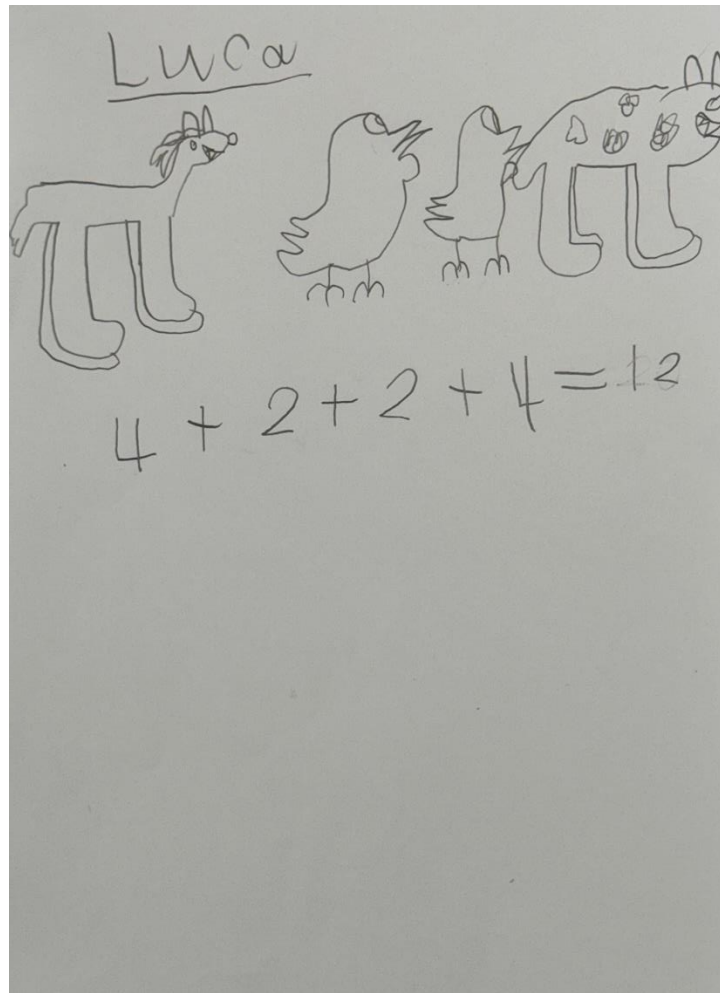 Luca
4 + 2 + 2 + 4 = 12